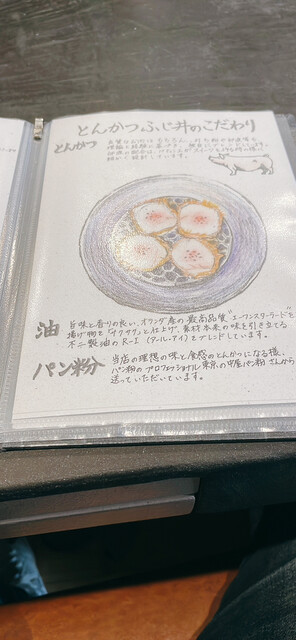 とんかつふじ井のこだわり
とんかつ
油
旨味と香りの良い、オランダ産の最高品質"エーワンスターラード"を
揚げ物を"サクサク"と仕上げ、素材本来の味を引き立てる
不二製油のR-I(アール・アイ)をブレンドしています。
パン粉
当店の理想の味と食感のとんかつになる様、
パン粉のプロフェッショナル東京の中屋パン粉さんから
送っていただいています。